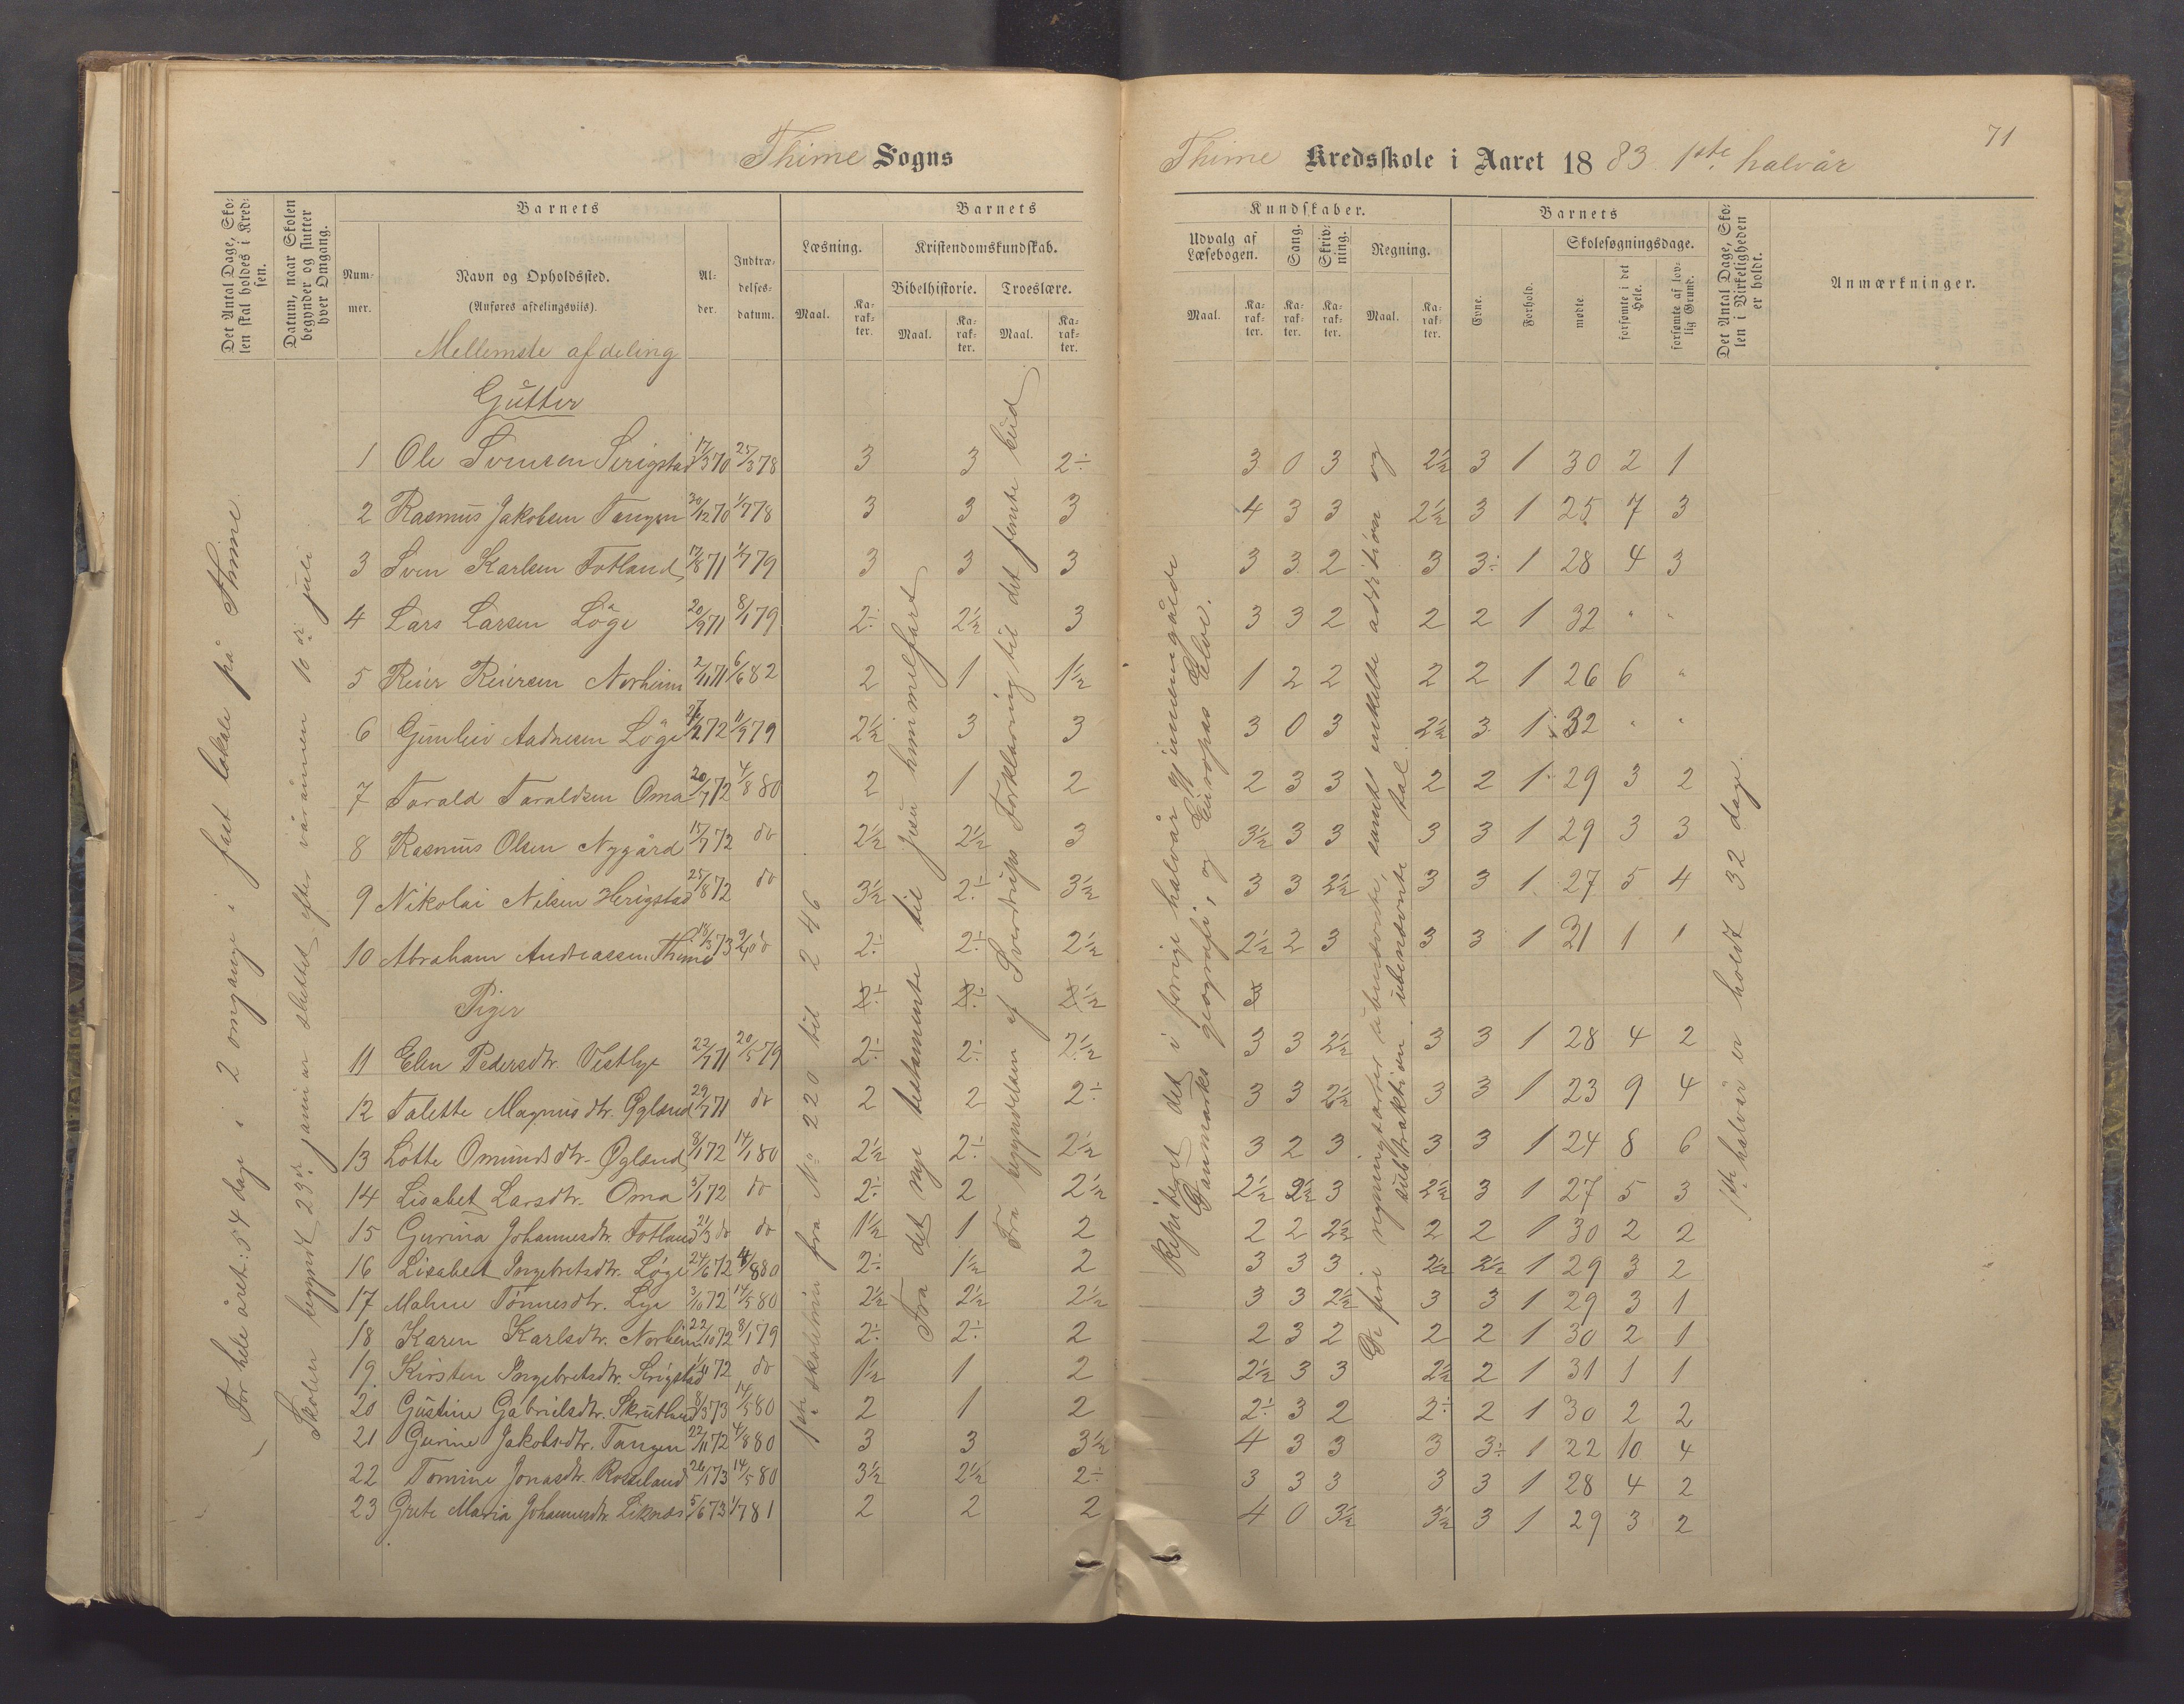 71
Thime Sogns
Thime Kredsskole i Aaret 1883. 1ste halvår
Det Antal Dage, Skolen skal holdes i Kredsen.
Datum, naar Skolen begynder og slutter hver Omgang.
Barnets
Nummer.
Navn og Opholdssted.
(Anføres afdelingsviis).
Alder.
Indtrædelsesdatum.
Barnets
Læsning.
Maal.
Karakter.
Kristendomskundskab.
Bibelhistorie.
Maal.
Karakter.
Troeslære.
Maal.
Karakter.
Kundskaber.
Udvalg af Læsebogen.
Maal.
Karakter.
Sang.
Karakter.
Skrivning.
Karakter.
Regning.
Maal.
Karakter.
Barnets
Evne.
Forhold.
Skolesøgningsdage.
mødte
forsømte i det Hele.
forsømte af lovlig Grund.
Det Antal Dage, Skolen i Virkeligheden er holdt.
Anmærkninger.
For hele året: 54 dage i 2 omgange i fast lokale på Thime.
Skolen begyndt 29de januar sluttet efter våronnen 10de juli
1ste skoletrin fra No 220 til 246
Fra det nye testamente til Jesu himmelfart
Fra begyndelsen af Sverdrups Forklaring til det femte bud
Repiteret det i forrige halvår gjennemgåede
Danmarks geografi, og Europas Elve.
De fire regningsarter i ubenævnte, samt enkelte addition og
subtraktion ubenævnte tal.
1ste halvår er holdt 32 dage.
Mellemste afdeling
Gutter
1 Ole Svensen Serigstad 17/3 70 25/3 78 3 3 2÷ 3 0 3 2½ 3 1 30 2 1
2 Rasmus Jakobsen Tangen 30/12 70 1/7 78 3 3 3 4 3 3 2½ 3 1 25 7 3
3 Sven Karlsen Fotland 17/8 71 1/7 79 3 3 3 3 3 2 3 3÷ 1 28 4 3
4 Lars Larsen Löge 20/9 71 8/1 79 2÷ 2½ 3 3 3 2 2 2 1 32 " "
5 Reier Reiersen Norheim 2/11 71 6/6 82 2 1 1½ 1 2 2 2 2 1 26 6 "
6 Gunleiv Aadnesen Löge 72 11/9 79 2½ 3 3 3 0 3 2½ 3 1 32 " "
7 Tarald Taraldsen Oma 20/7 72 4/8 80 2 1 2 2 3 3 2 2 1 29 3 2
8 Rasmus Olsen Nygård 15/7 72 do 2½ 2½ 3 3½ 3 3 3 3 1 29 3 3
9 Nikolai Nilsen Herigstad 25/8 72 do 3½ 2÷ 3½ 3 3 2½ 3 3 1 27 5 4
10 Abraham Andreassen Thime 18/3 73 do 2÷ 2÷ 2½ 2½ 2 3 3 3 1 31 1 1
Piger
11 Elen Pedersdtr. Vestlye 22/7 71 20/5 79 2÷ 2÷ 2½ 3 3 2½ 3 3 1 28 4 2
12 Talette Magnusdtr. Øgland 29/7 71 do 2 2 2÷ 3 3 2½ 3 3 1 23 9 4
13 Lotte Omundsdtr. Øgland 8/1 72 14/1 80 2½ 2÷ 2½ 3 2 3 3 3 1 24 8 6
14 Lisabet Larsdtr. Oma 3/1 72 do 2÷ 2 2½ 2½ 2½ 3 2½ 3 1 27 5 3
15 Gurina Johannesdtr. Fotland 21/3 do do 1½ 1 2 2 2 2½ 2 2 1 30 2 2
16 Lisabet Ingebretsdtr. Löge 24/6 72 4/8 80 2÷ 1½ 2 3 3 3 2½ 2½ 1 29 3 2
17 Malene Tönnesdtr. Lye 3/10 72 14/5 80 2½ 2½ 2½ 3 3 2½ 3 3 1 29 3 1
18 Karen Karlsdtr. Norheim 22/10 72 8/1 79 2÷ 2÷ 2 2 3 2 2 2 1 30 2 1
19 Kirsten Ingebretsdtr. Serigstad 72 do 1½ 1 2 2½ 3 3 2½ 2 1 31 1 1
20 Gustine Gabrielsdtr. Skrutland 8/3 73 14/5 80 2 1 2 2÷ 3 2 2÷ 2 1 30 2 2
21 Gurine Jakobsdtr. Tangen 22/11 72 4/8 80 3 3 3½ 4 3 3 3 3÷ 1 22 10 4
22 Tomine Jonasdtr. Rosseland 26/1 73 14/5 80 3½ 2½ 2÷ 3 3 3 3 3 1 28 4 2
23 Grete Maria Johannesdtr. Liknæs 5/6 73 1/7 81 2 2 2 4 0 3½ 3½ 3 1 29 3 2